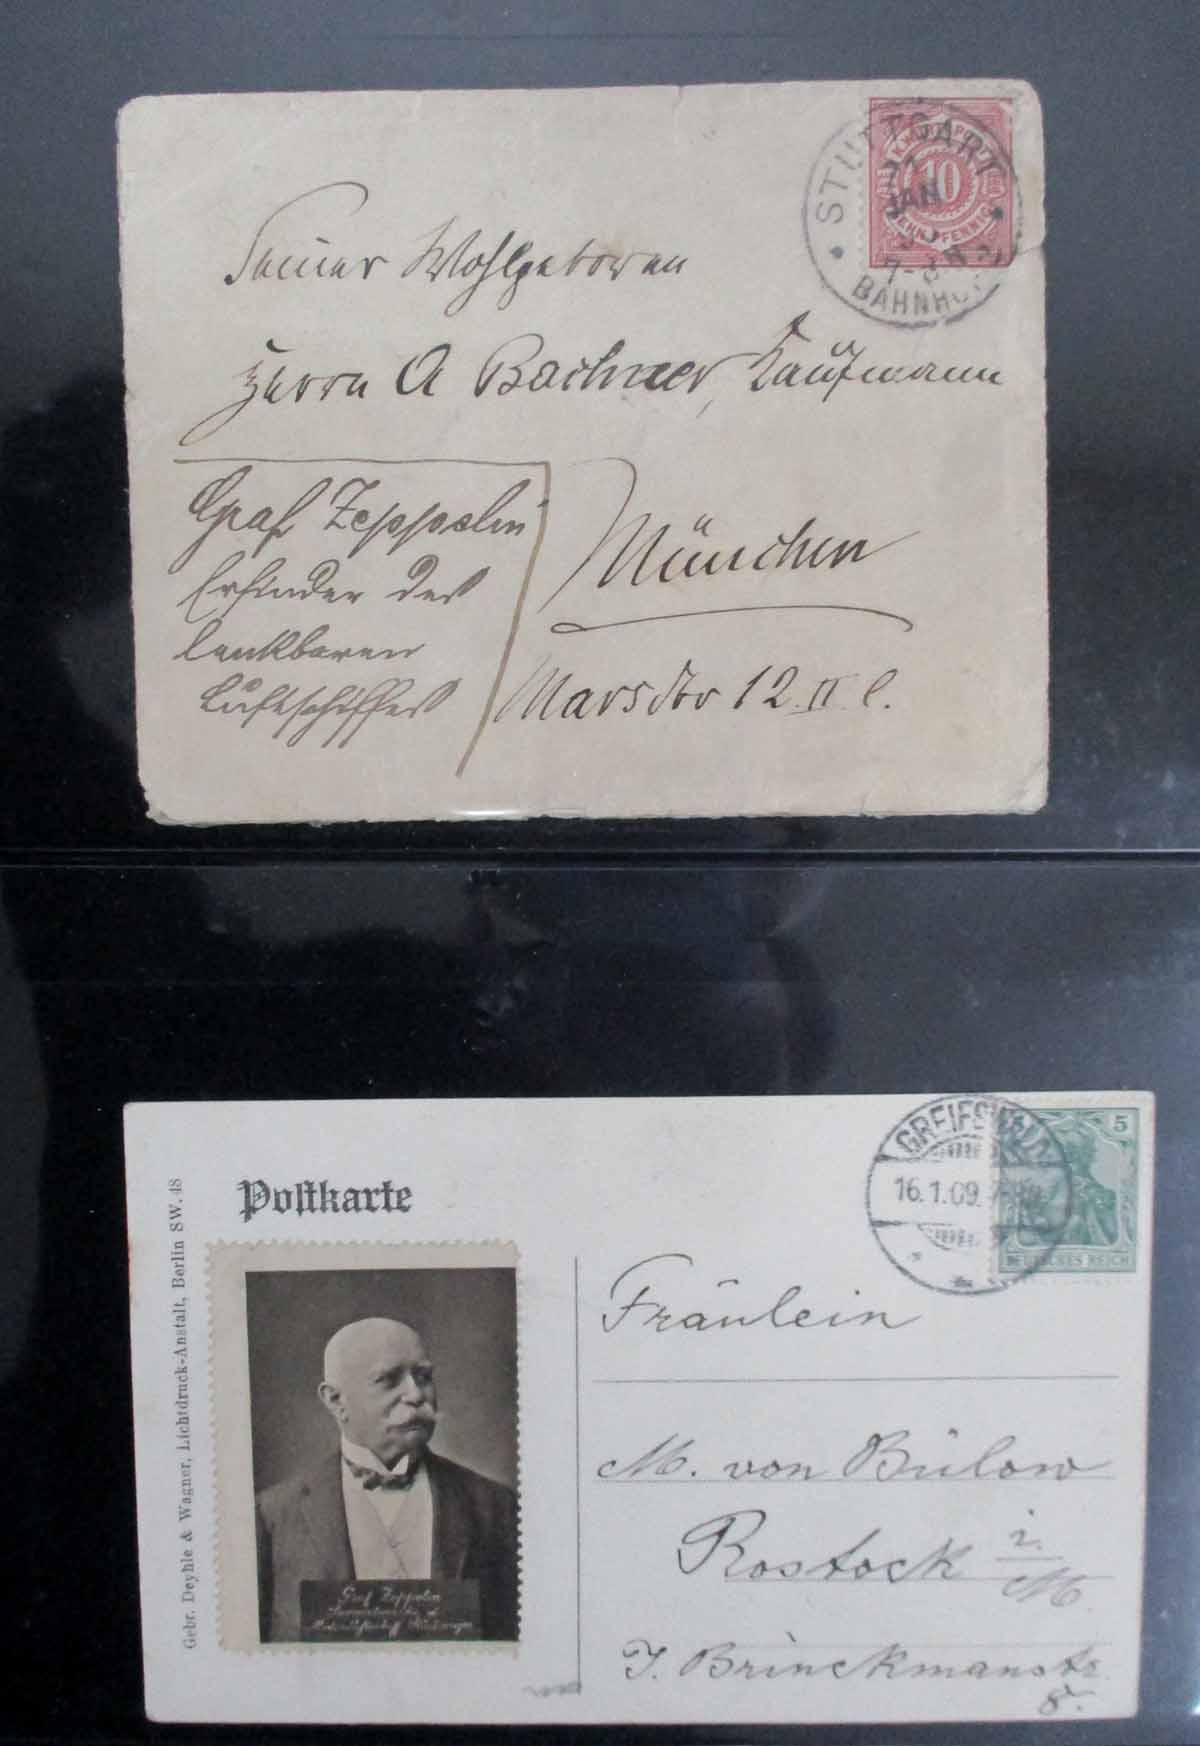 STUTTGART
JAN
7-8
BAHNHOF
K.WÜRTT.POST
10
ZEHN PFENNIG
Seiner Wohlgeboren
Herrn A Bachner, Kaufmann
München
Marsstr 12 II l.
Graf Zeppelin
Erfinder des
lenkbaren
Luftschiffes
Postkarte
Gebr. Deyhle & Wagner, Lichtdruck-Anstalt, Berlin SW. 48
GREIFSWALD
16.1.09. 7-8
5
DEUTSCHES REICH
Graf Zeppelin
Fräulein
M. von Bülow
Rostock i. M.
J. Brinckmanstr
8.